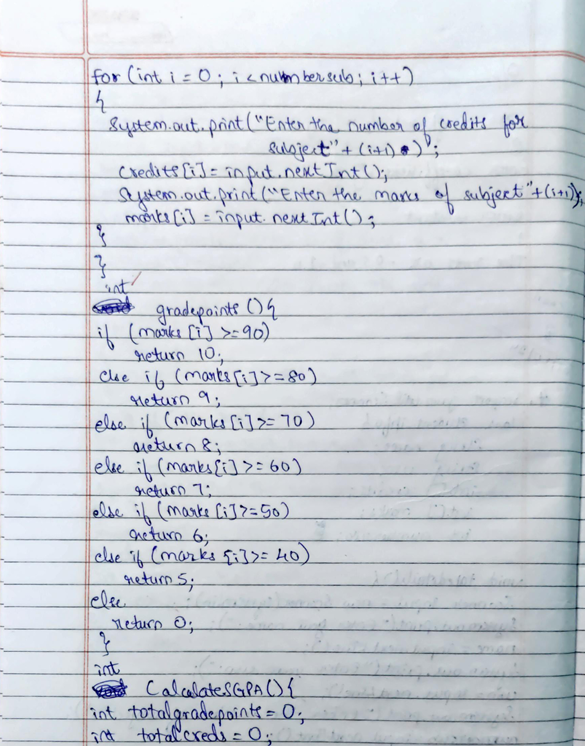 for (int i = 0; i < numbersub; i++)
{
System.out.print("Enter the number of credits for
subject" + (i+1) );
credits[i] = input.nextInt();
System.out.print("Enter the marks of subject"+(i+1));
marks[i] = input.nextInt();
}
}
int
gradepoints (){
if (marks[i] >=90)
return 10;
else if (marks[i]>=80)
return 9;
else if (marks[i]>=70)
return 8;
else if (marks[i] >=60)
return 7;
else if (marks[i]>=50)
return 6;
else if (marks[i]>=40)
return 5;
else
return 0;
}
int
CalculateSGPA(){
int totalgradepoints = 0;
int totalcreds = 0;